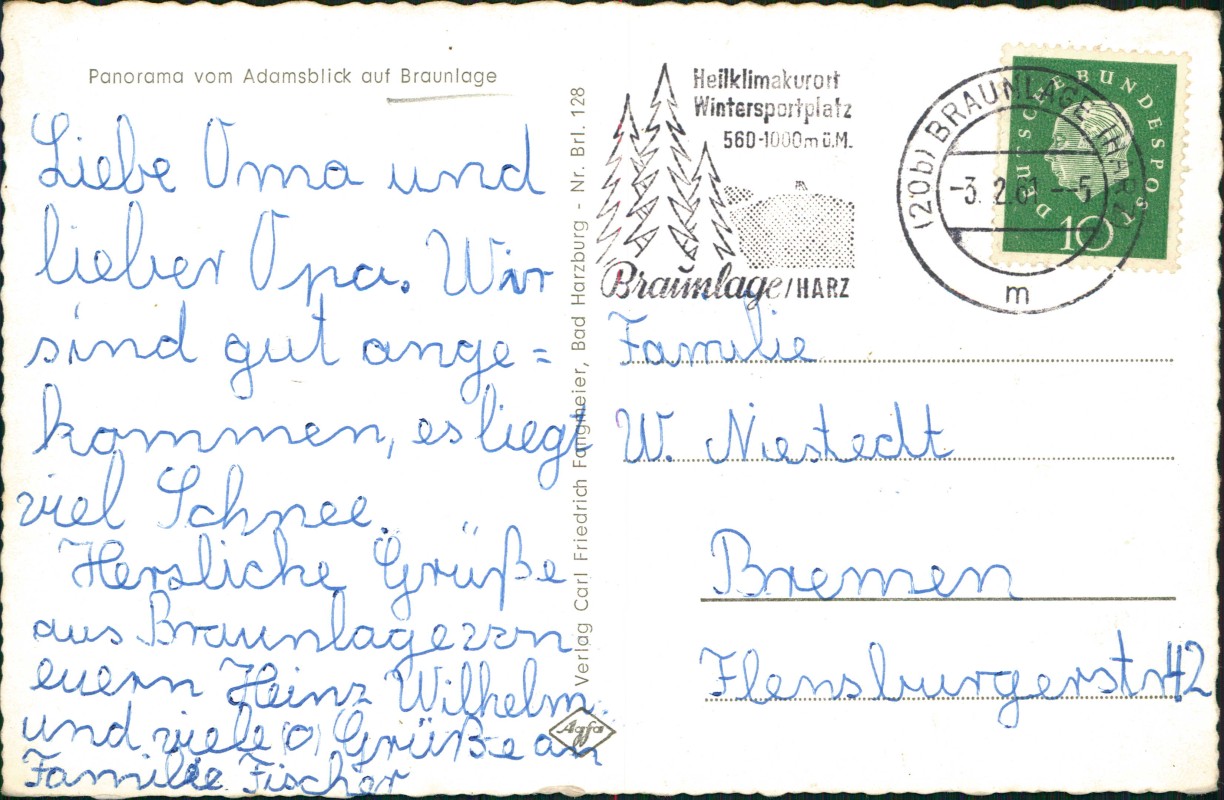 Panorama vom Adamsblick auf Braunlage
Liebe Oma und
lieber Opa. Wir
sind gut ange=
kommen, es liegt
viel Schnee.
Herzliche Grüße
aus Braunlage von
euern Heinz Wilhelm.
und viele Grüße an
Familie Fischer
Verlag Carl Friedrich Fangmeier, Bad Harzburg - Nr. Brl. 128
Agfa
Heilklimakurort
Wintersportplatz
560-1000m ü.M.
Braunlage/HARZ
(20b) BRAUNLAGE (HARZ)
-3. 2.61 --5
m
DEUTSCHE BUNDESPOST
10
Familie
W. Niestedt
Bremen
Flensburgerstr 42